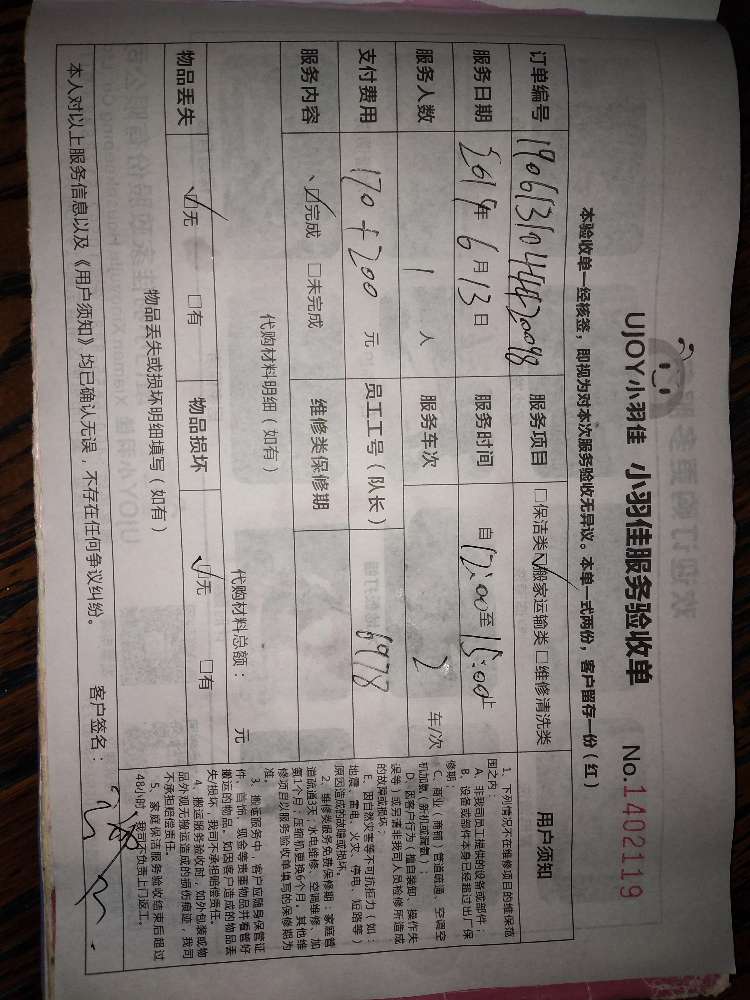 UJOY小羽佳 小羽佳服务验收单 No.1402119
本验收单一经核签，即视为对本次服务验收无异议。本单一式两份，客户留存一份（红）
订单编号 19061310444420098 服务项目 □保洁类☑搬家运输类□维修清洗类
服务日期 2019年6月13日 服务时间 自12:00至15:00止
服务人数 1 人 服务车次 2 车/次
支付费用 170+200 元 员工工号（队长） 6978
服务内容 ☑完成 □未完成 维修类保修期
代购材料明细（如有）
代购材料总额： 元
物品丢失 ☑无 □有 物品损坏 ☑无 □有
物品丢失或损坏明细填写（如有）
本人对以上服务信息以及《用户须知》均已确认无误，不存在任何争议纠纷。 客户签名：
用户须知
1、下列情况不在维修项目的维保范
围之内：
A、非我司员工提供的设备或部件；
B、设备或部件本身已经超过出厂保
修期；
C、商业（商铺）管道疏通、空调空
机加氟（新机或漏氟）；
D、因客户行为（擅自装卸、操作失
误等）或另请非我司人员检修所造成
的故障或损坏；
E、因自然灾害等不可抗拒力（如：
地震、雷电、火灾、停电、短路等）
原因造成的故障或损坏。
2、维修类服务免费保修期：家庭管
道疏通3天，水电维修、空调维修、加
氟1个月；压缩机更换6个月，其他维
修项目以服务验收单填写的保修期为
准。
3、搬运服务中，客户应随身保管证
件、首饰、现金等贵重物品并看管好
搬运的物品。如因客户造成的物品丢
失/损坏，我司不承担赔偿责任。
4、搬运服务验收时，如外包装或物
品外观无搬运造成的损伤痕迹，我司
不承担赔偿责任。
5、家庭保洁服务验收结束后超过
48小时，我司不负责上门返工。